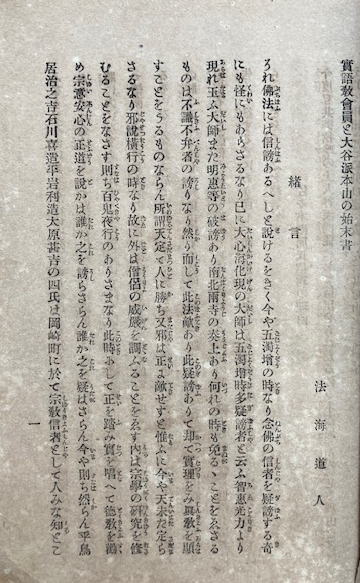 實語敎會員と大谷派本山の始末書
法海道人
緒言
それ佛法には信謗あるへしと說けるをきく今や五濁增の時なり念佛の信者を疑謗する奇
にも怪にもあらさるなり已に大心海化現の大師は五濁增時多疑謗者と云ふ智惠光力より
現れ玉ふ大師また明惠等の破謗あり南北兩寺の奏上あり何れの時も免るゝことをゑさる
ものは不識不弁者の謗りなり然り而して此法敵あり此疑謗ありて却て實理をみ眞敎を顯
すことをうるものならん所謂天定て人に勝ち又邪は正に敵せすと惟ふに今や天未た定ら
さるなり邪說橫行の時なり故に外は僧侶の威嚴を調ふることをゑす內は宗學の硏究を修
むることをなさす則ち百鬼夜行のありさまなり此時にして正を踏み實を唱へて德敎を渴
め宗意安心の正道を說かは誰か之を謗らさらん誰か之を疑はさらん今や則ち然らん平鳥
居治之吉石川喜造平岩利造大原甚吉の四氏は岡崎町に於て宗敎信者として人みな知とこ
一